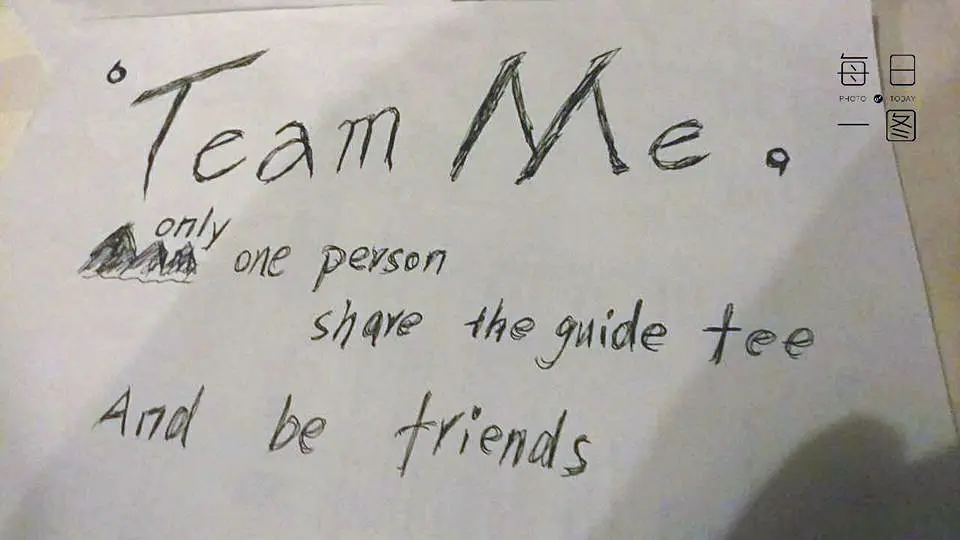 Team Me.
only
one person
share the guide tee
And be friends
每日
PHOTO of TODAY
一图